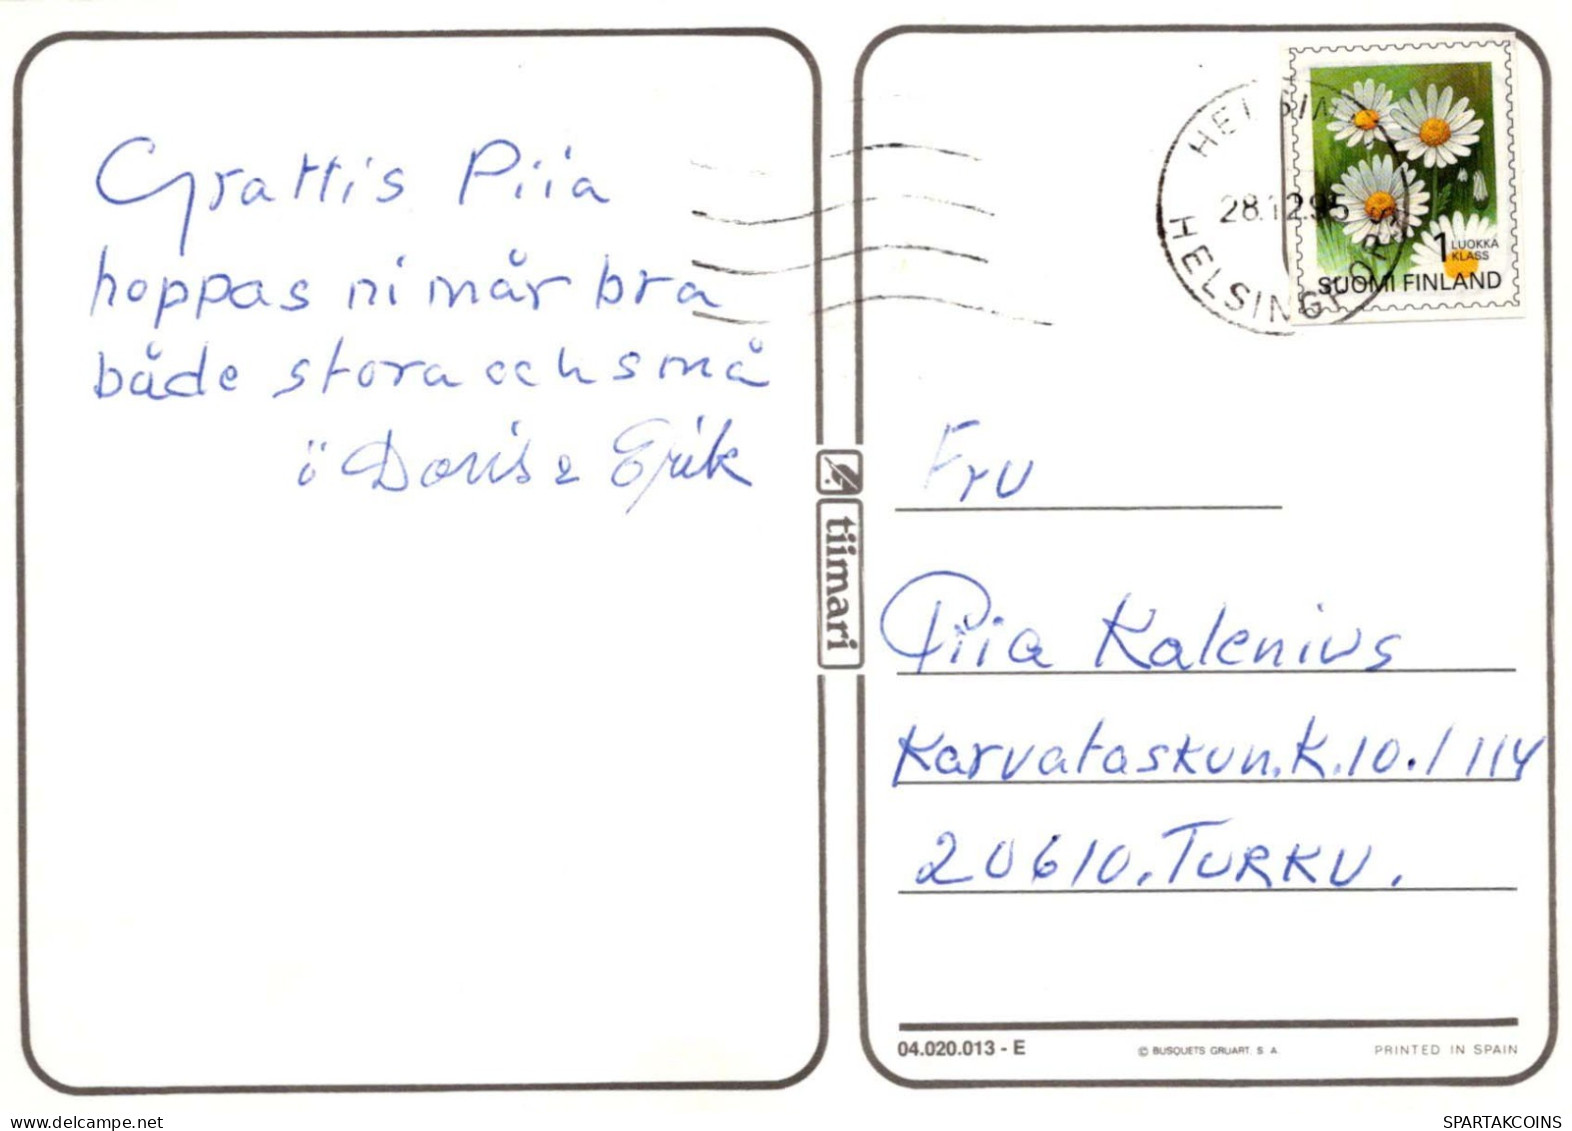 Grattis Piia
hoppas ni mår bra
både stora och små
Doris & Erik
tiimari
HELSINKI
28.12.95
HELSINGFORS
1 LUOKKA
KLASS
SUOMI FINLAND
Fru
Piia Kalenius
Karvataskun.K.10./114
20610. TURKU.
04.020.013 - E
© BUSQUETS GRUART. S A
PRINTED IN SPAIN
delcampe.net
SPARTAKCOINS